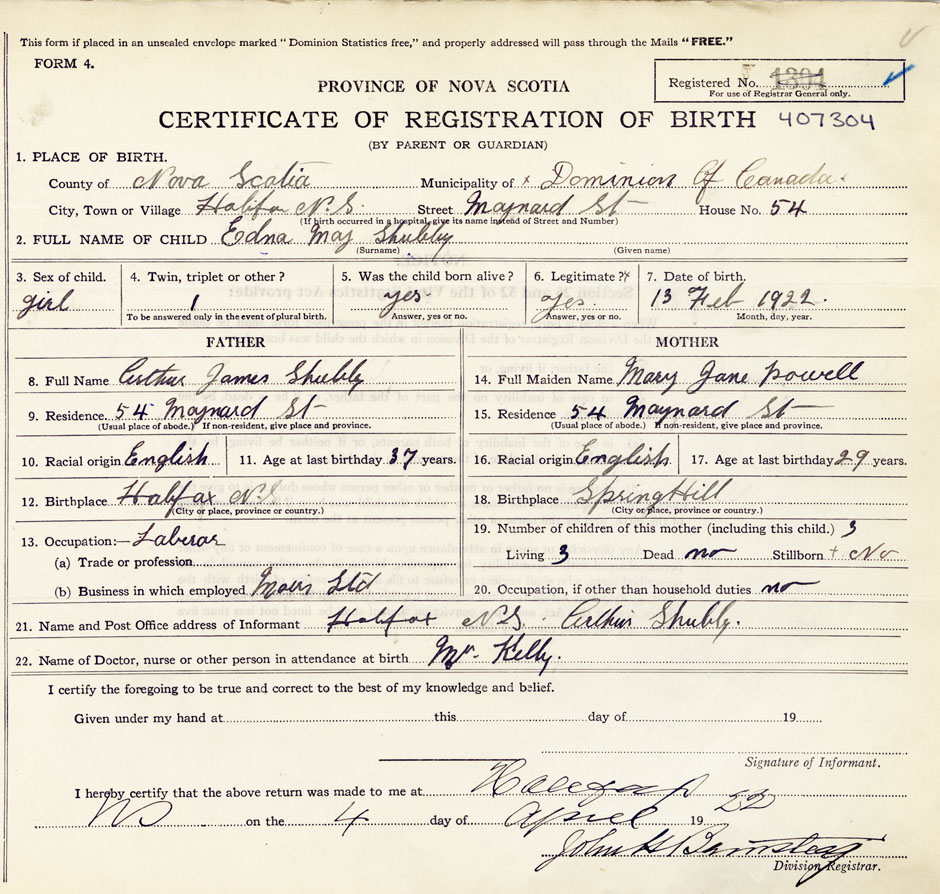 This form if placed in an unsealed envelope marked "Dominion Statistics free," and properly addressed will pass through the Mails "FREE."
FORM 4.
PROVINCE OF NOVA SCOTIA
Registered No. 1394
For use of Registrar General only.
CERTIFICATE OF REGISTRATION OF BIRTH 407304
(BY PARENT OR GUARDIAN)
1. PLACE OF BIRTH.
County of Nova Scotia Municipality of Dominion Of Canada.
City, Town or Village Halifax N.S. Street Maynard St House No. 54
(If birth occurred in a hospital, give its name instead of Street and Number)
2. FULL NAME OF CHILD Edna May Shubly
(Surname) (Given name)
3. Sex of child. 4. Twin, triplet or other? 5. Was the child born alive? 6. Legitimate? 7. Date of birth.
girl 1 yes- yes 13 Feb 1922.
To be answered only in the event of plural birth. Answer, yes or no. Answer, yes or no. Month, day, year.
FATHER MOTHER
8. Full Name Arthur James Shubly 14. Full Maiden Name Mary Jane Powell
9. Residence. 54 Maynard St 15. Residence 54 Maynard St
(Usual place of abode.) If non-resident, give place and province. (Usual place of abode.) If non-resident, give place and province.
10. Racial origin English 11. Age at last birthday 37 years. 16. Racial origin English 17. Age at last birthday 29 years.
12. Birthplace Halifax N.S 18. Birthplace SpringHill
(City or place, province or country.) (City or place, province or country.)
13. Occupation:— Laberar 19. Number of children of this mother (including this child.) 3
(a) Trade or profession Living 3 Dead no Stillborn No
(b) Business in which employed Moirs Ltd 20. Occupation, if other than household duties no
21. Name and Post Office address of Informant Halifax N.S. Arthur Shubly.
22. Name of Doctor, nurse or other person in attendance at birth Mr. Kelly.
I certify the foregoing to be true and correct to the best of my knowledge and belief.
Given under my hand at this day of 19
Signature of Informant.
I hereby certify that the above return was made to me at Halifax
NS on the 4 day of April 19 22
John H Barnstead
Division Registrar.